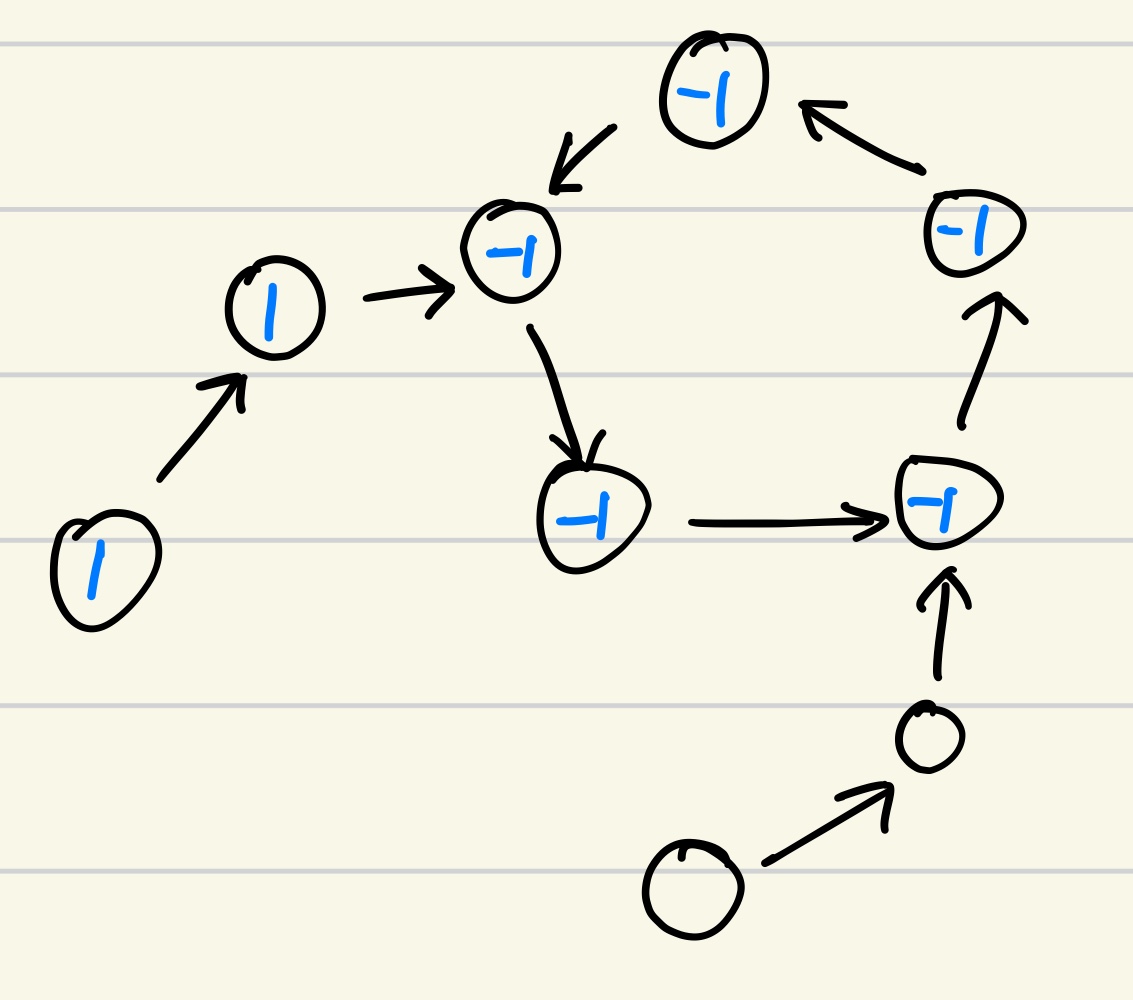 -1
-1
-1
1
-1
-1
1